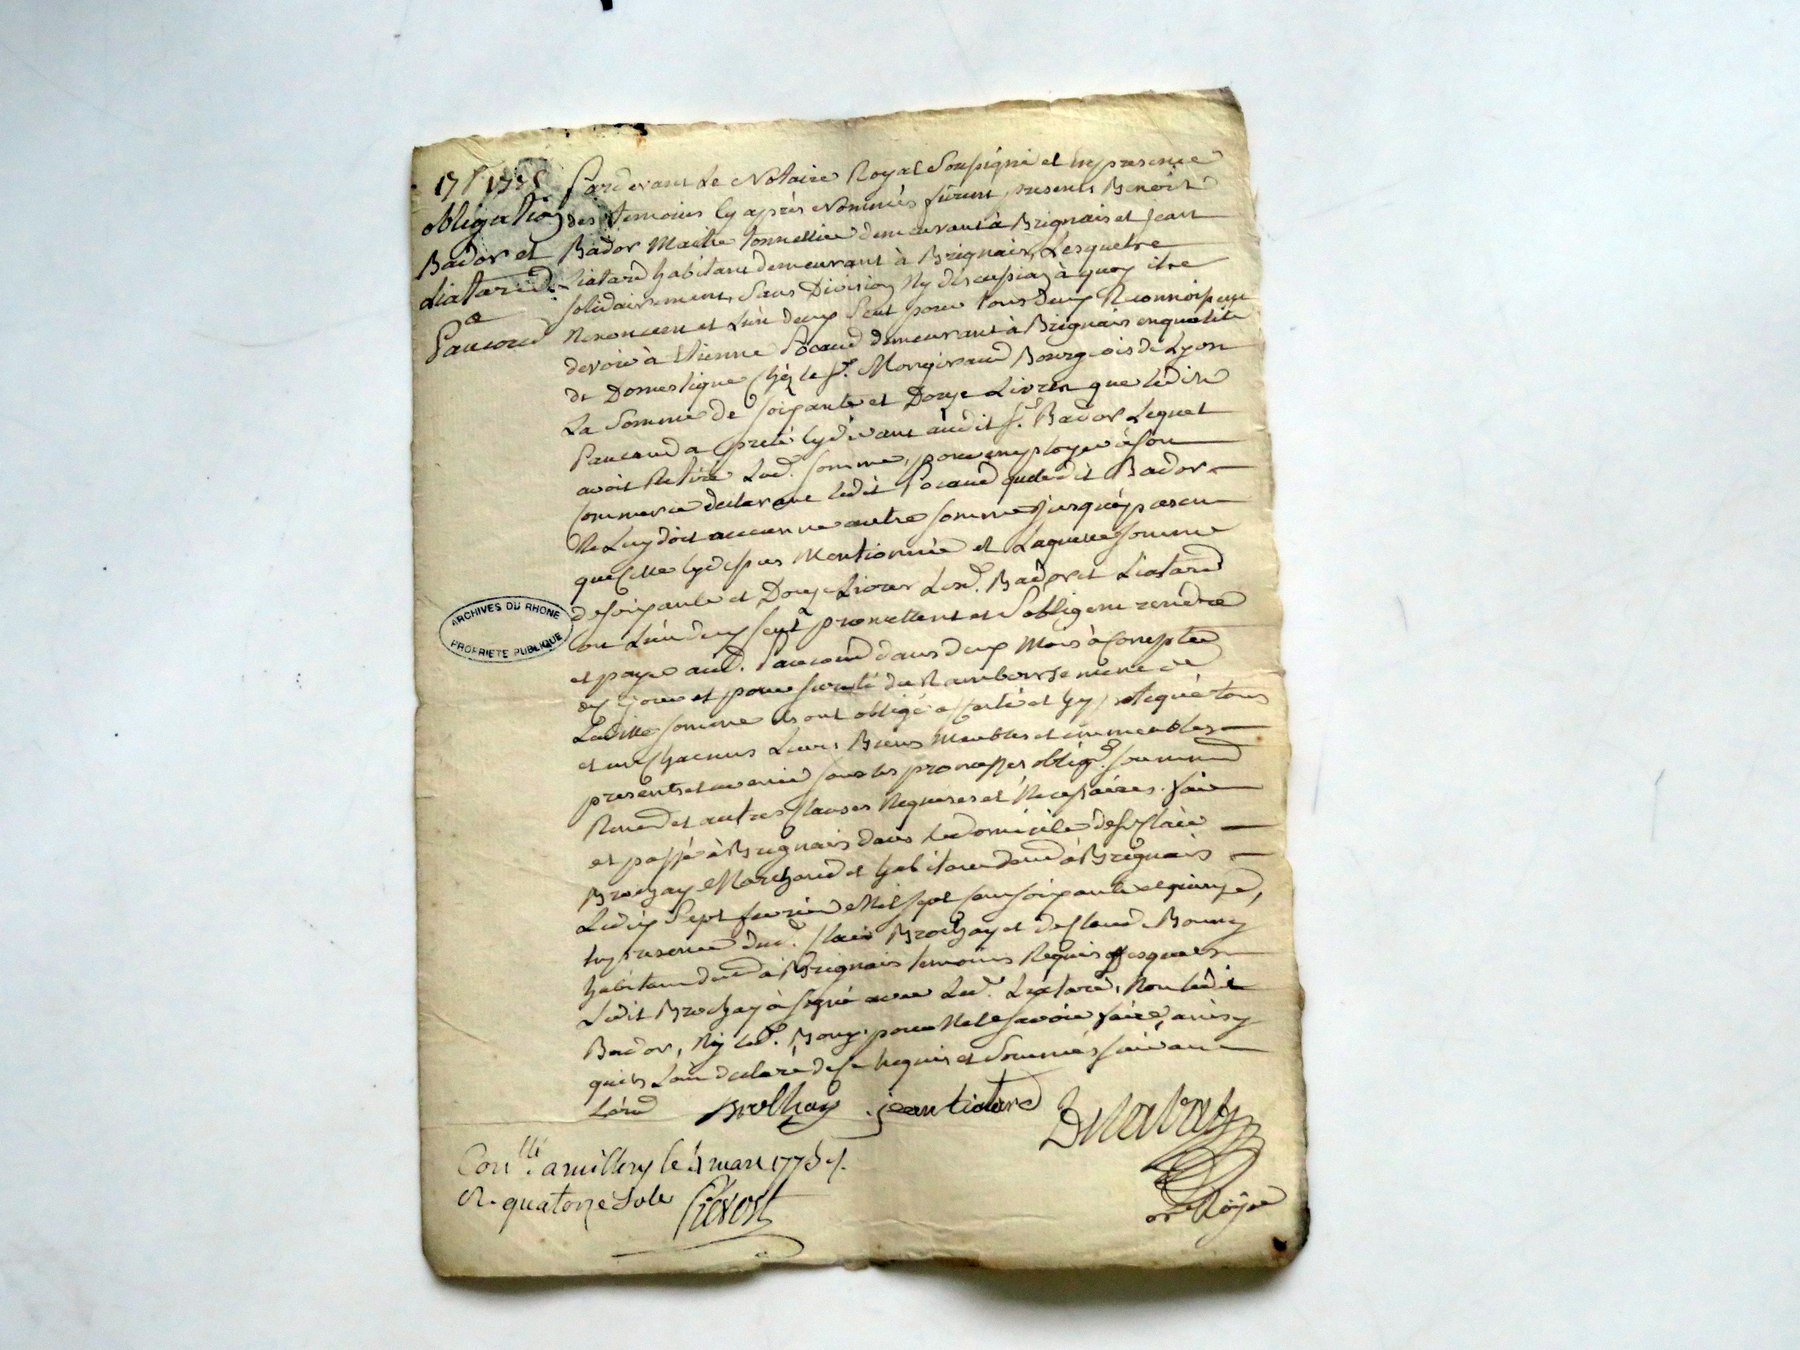 obligation
Bador et
Liatard
a
Paucond
Pardevant Le Notaire Royal Soussigné et En presence
des temoins Cy après Nommés furent presents Benoist
Bador Maitre tonnellier demeurant à Brignais et Jean
Liatard habitant demeurant à Brignais, Lesquels
solidairement Sans Division Ny discussion à quoy ils
Renoncent et L'un d'eux seul pour tous deux Reconnoissent
devoir à Etienne Pocaud demeurant à Brignais en qualité
de Domestique Chéz le Sr. Bourgeois de Lyon
La Somme de soixante et Douze Livres que ledit
Paucond a preté Cy devant audit Sr. Bador Lequel
avoit Retiré Lad. somme, pour employer à son
Commerce declarant ledit Pocaud que ledit Bador
Ne Luy doit aucunne autre somme jusqu'à present
que Celle Cy dessus Mentionnée et Laquelle somme
de soixante et Douze Livres Lesd. Bador et Liatard
ou L'un d'eux seul promettent et s'obligent rendre
et payer aud. Paucond dans deux Mois à Compter
de ce jour et pour sureté du Rambourssement de
Laditte somme ils ont obligé affecté et hypotequé tous
et un Chacuns Leurs Biens Meubles et immeubles
presents et avenir sous les promesses oblig. soummd
Renond et autres Clauses Requises et Necessaires. fait
et passé à Brignais dans le domicile de Sr Claire
Brochay Marchand et habitant dud à Brignais
Ledix Sept fevrier Mil sept cent soixante et quinze,
En presence dud. Claire Brochay et de Claude Bouny
habitant dud à Brignais temoins Requis Lesquels
Ledit Brochay à signé avec Led. Liatard, Non ledit
Bador, Ny led. Bouny pour Ne le savoir faire, ainsy
qu'ils L'ont declaré de ce Enquis et Sommés suivant
L'ord Brochay jean liatard
Conllé. a millery le mars 1775
R. quatorze sols
Prévost
Nre Royal
ARCHIVES DU RHONE
PROPRIETE PUBLIQUE